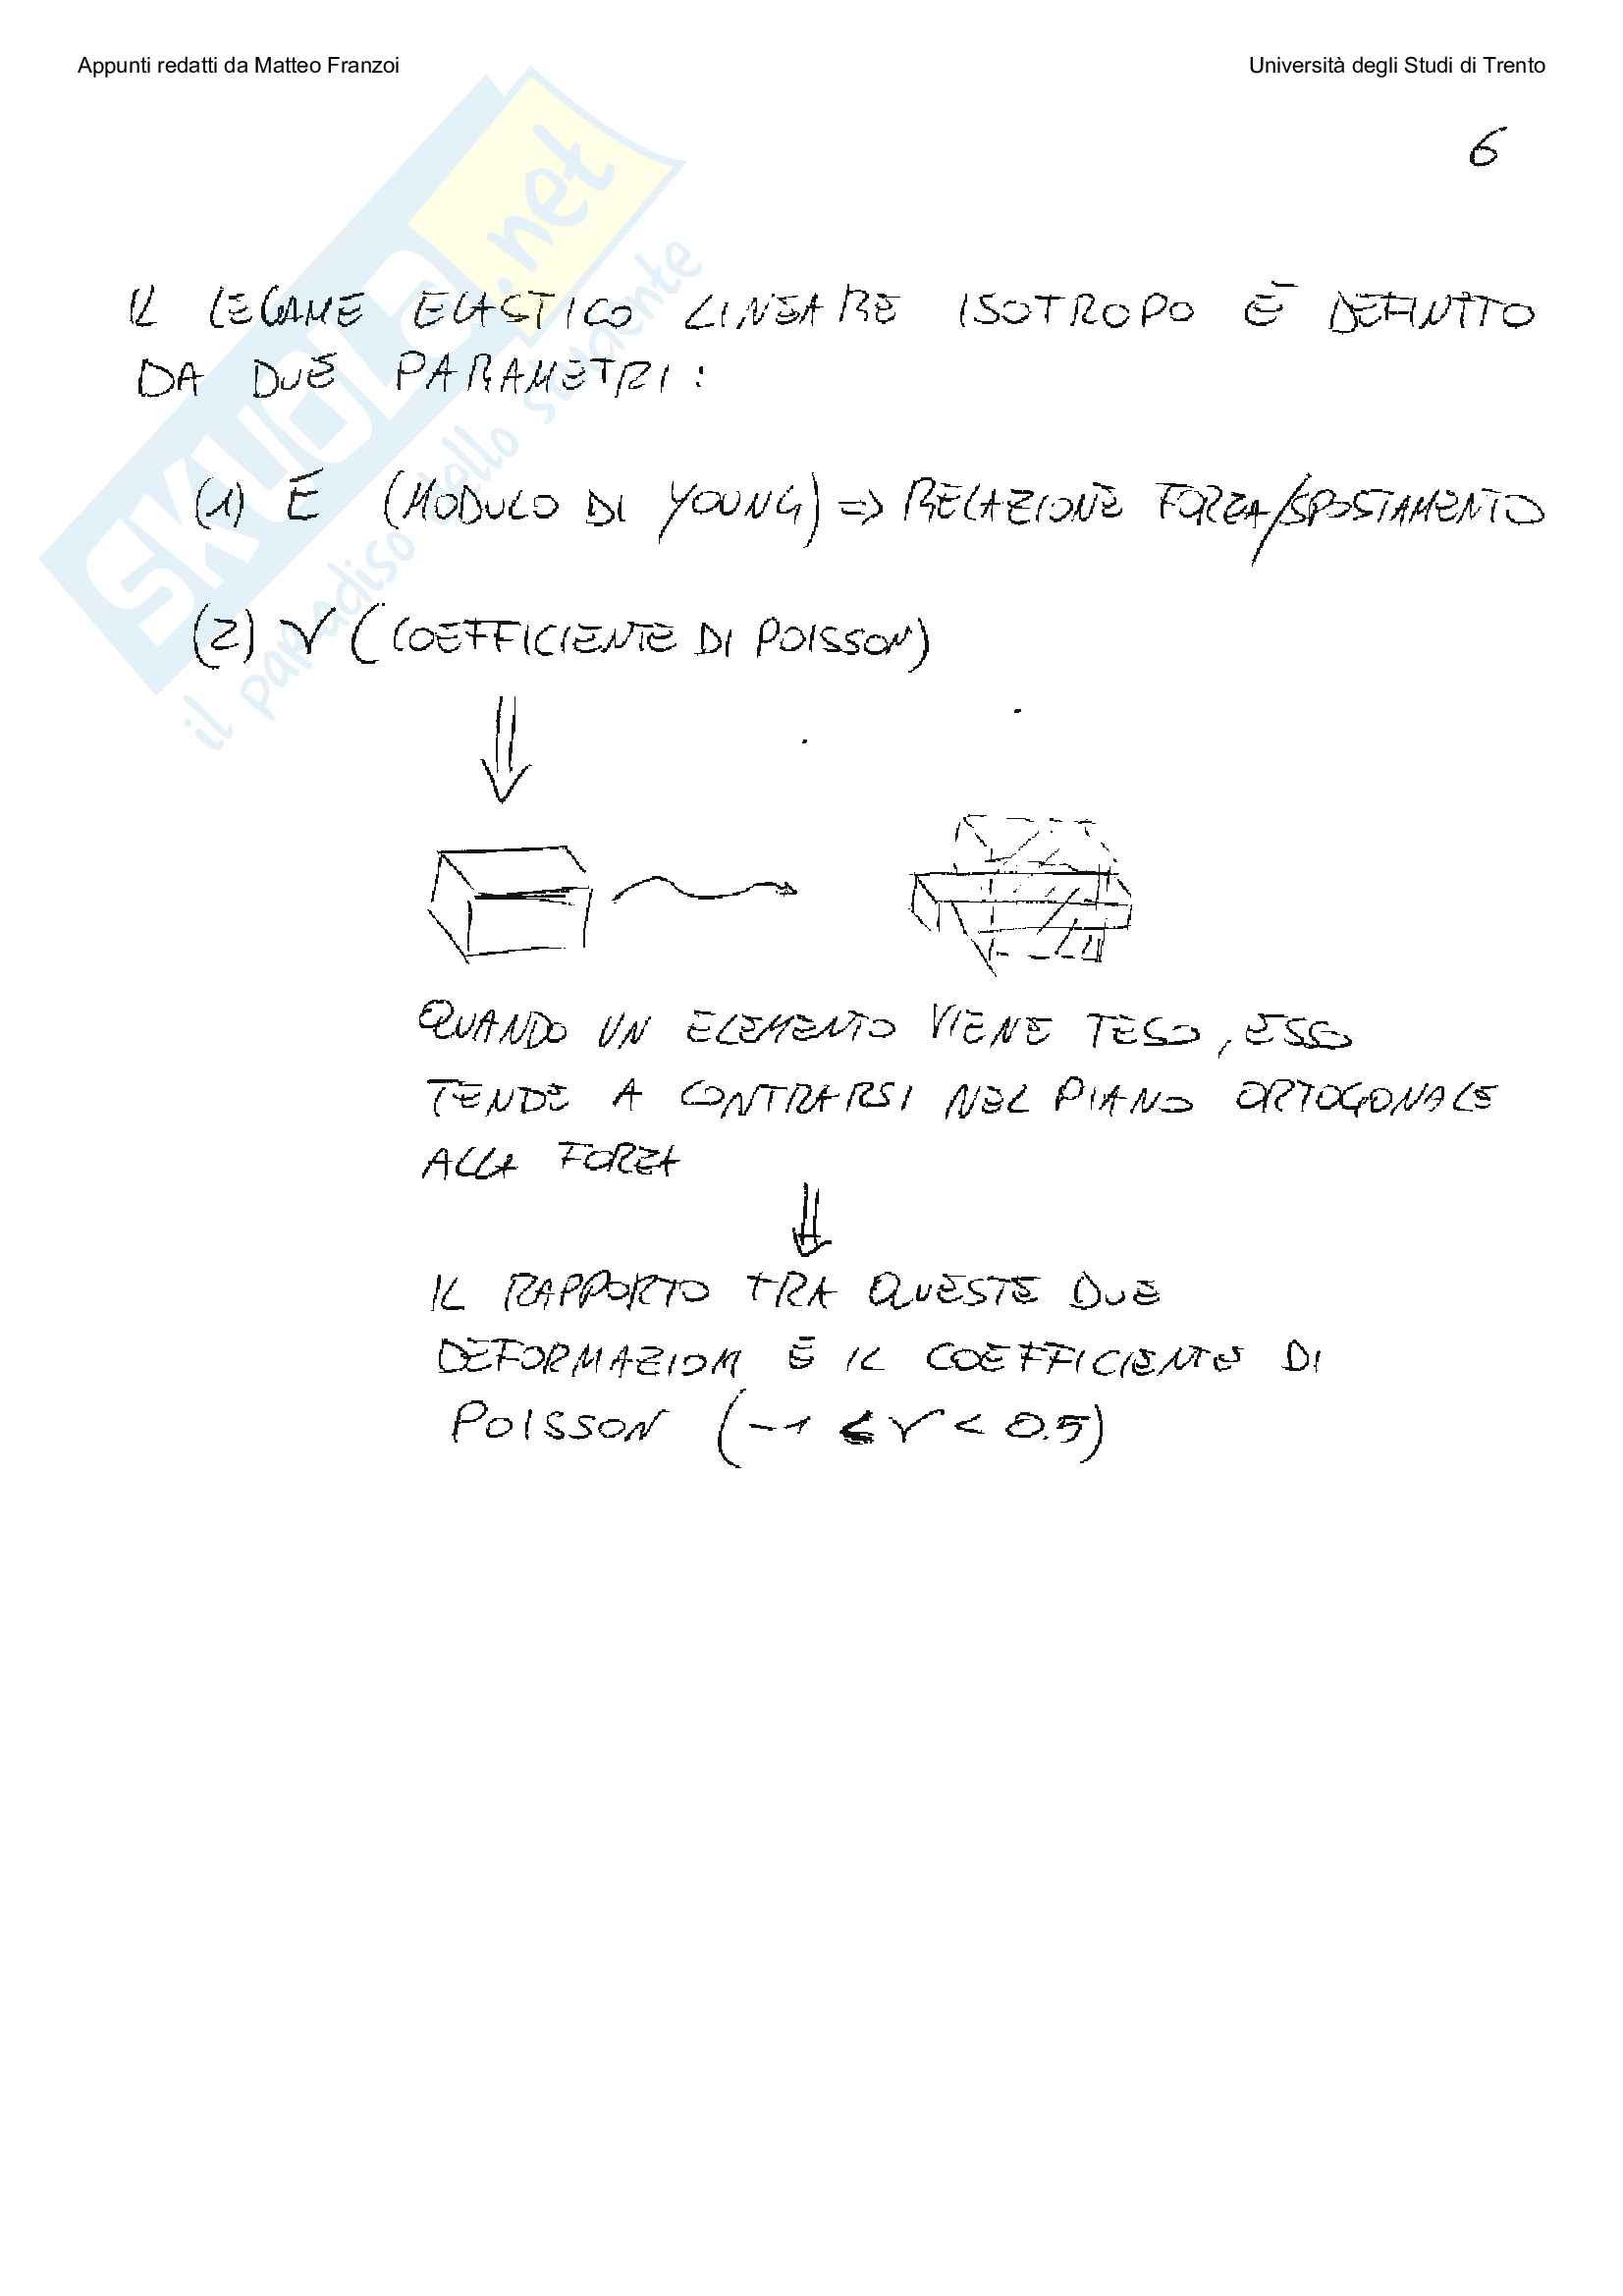 Appunti redatti da Matteo Franzoi
Università degli Studi di Trento
6
SKUOLA.net
il paradiso dello studente
IL LEGAME ELASTICO LINEARE ISOTROPO È DEFINITO
DA DUE PARAMETRI:
(1) E (MODULO DI YOUNG) => RELAZIONE FORZA/SPOSTAMENTO
(2) ν (COEFFICIENTE DI POISSON)
QUANDO UN ELEMENTO VIENE TESO, ESSO
TENDE A CONTRARSI NEL PIANO ORTOGONALE
ALLA FORZA
IL RAPPORTO TRA QUESTE DUE
DEFORMAZIONI È IL COEFFICIENTE DI
POISSON (-1 ≤ ν < 0.5)